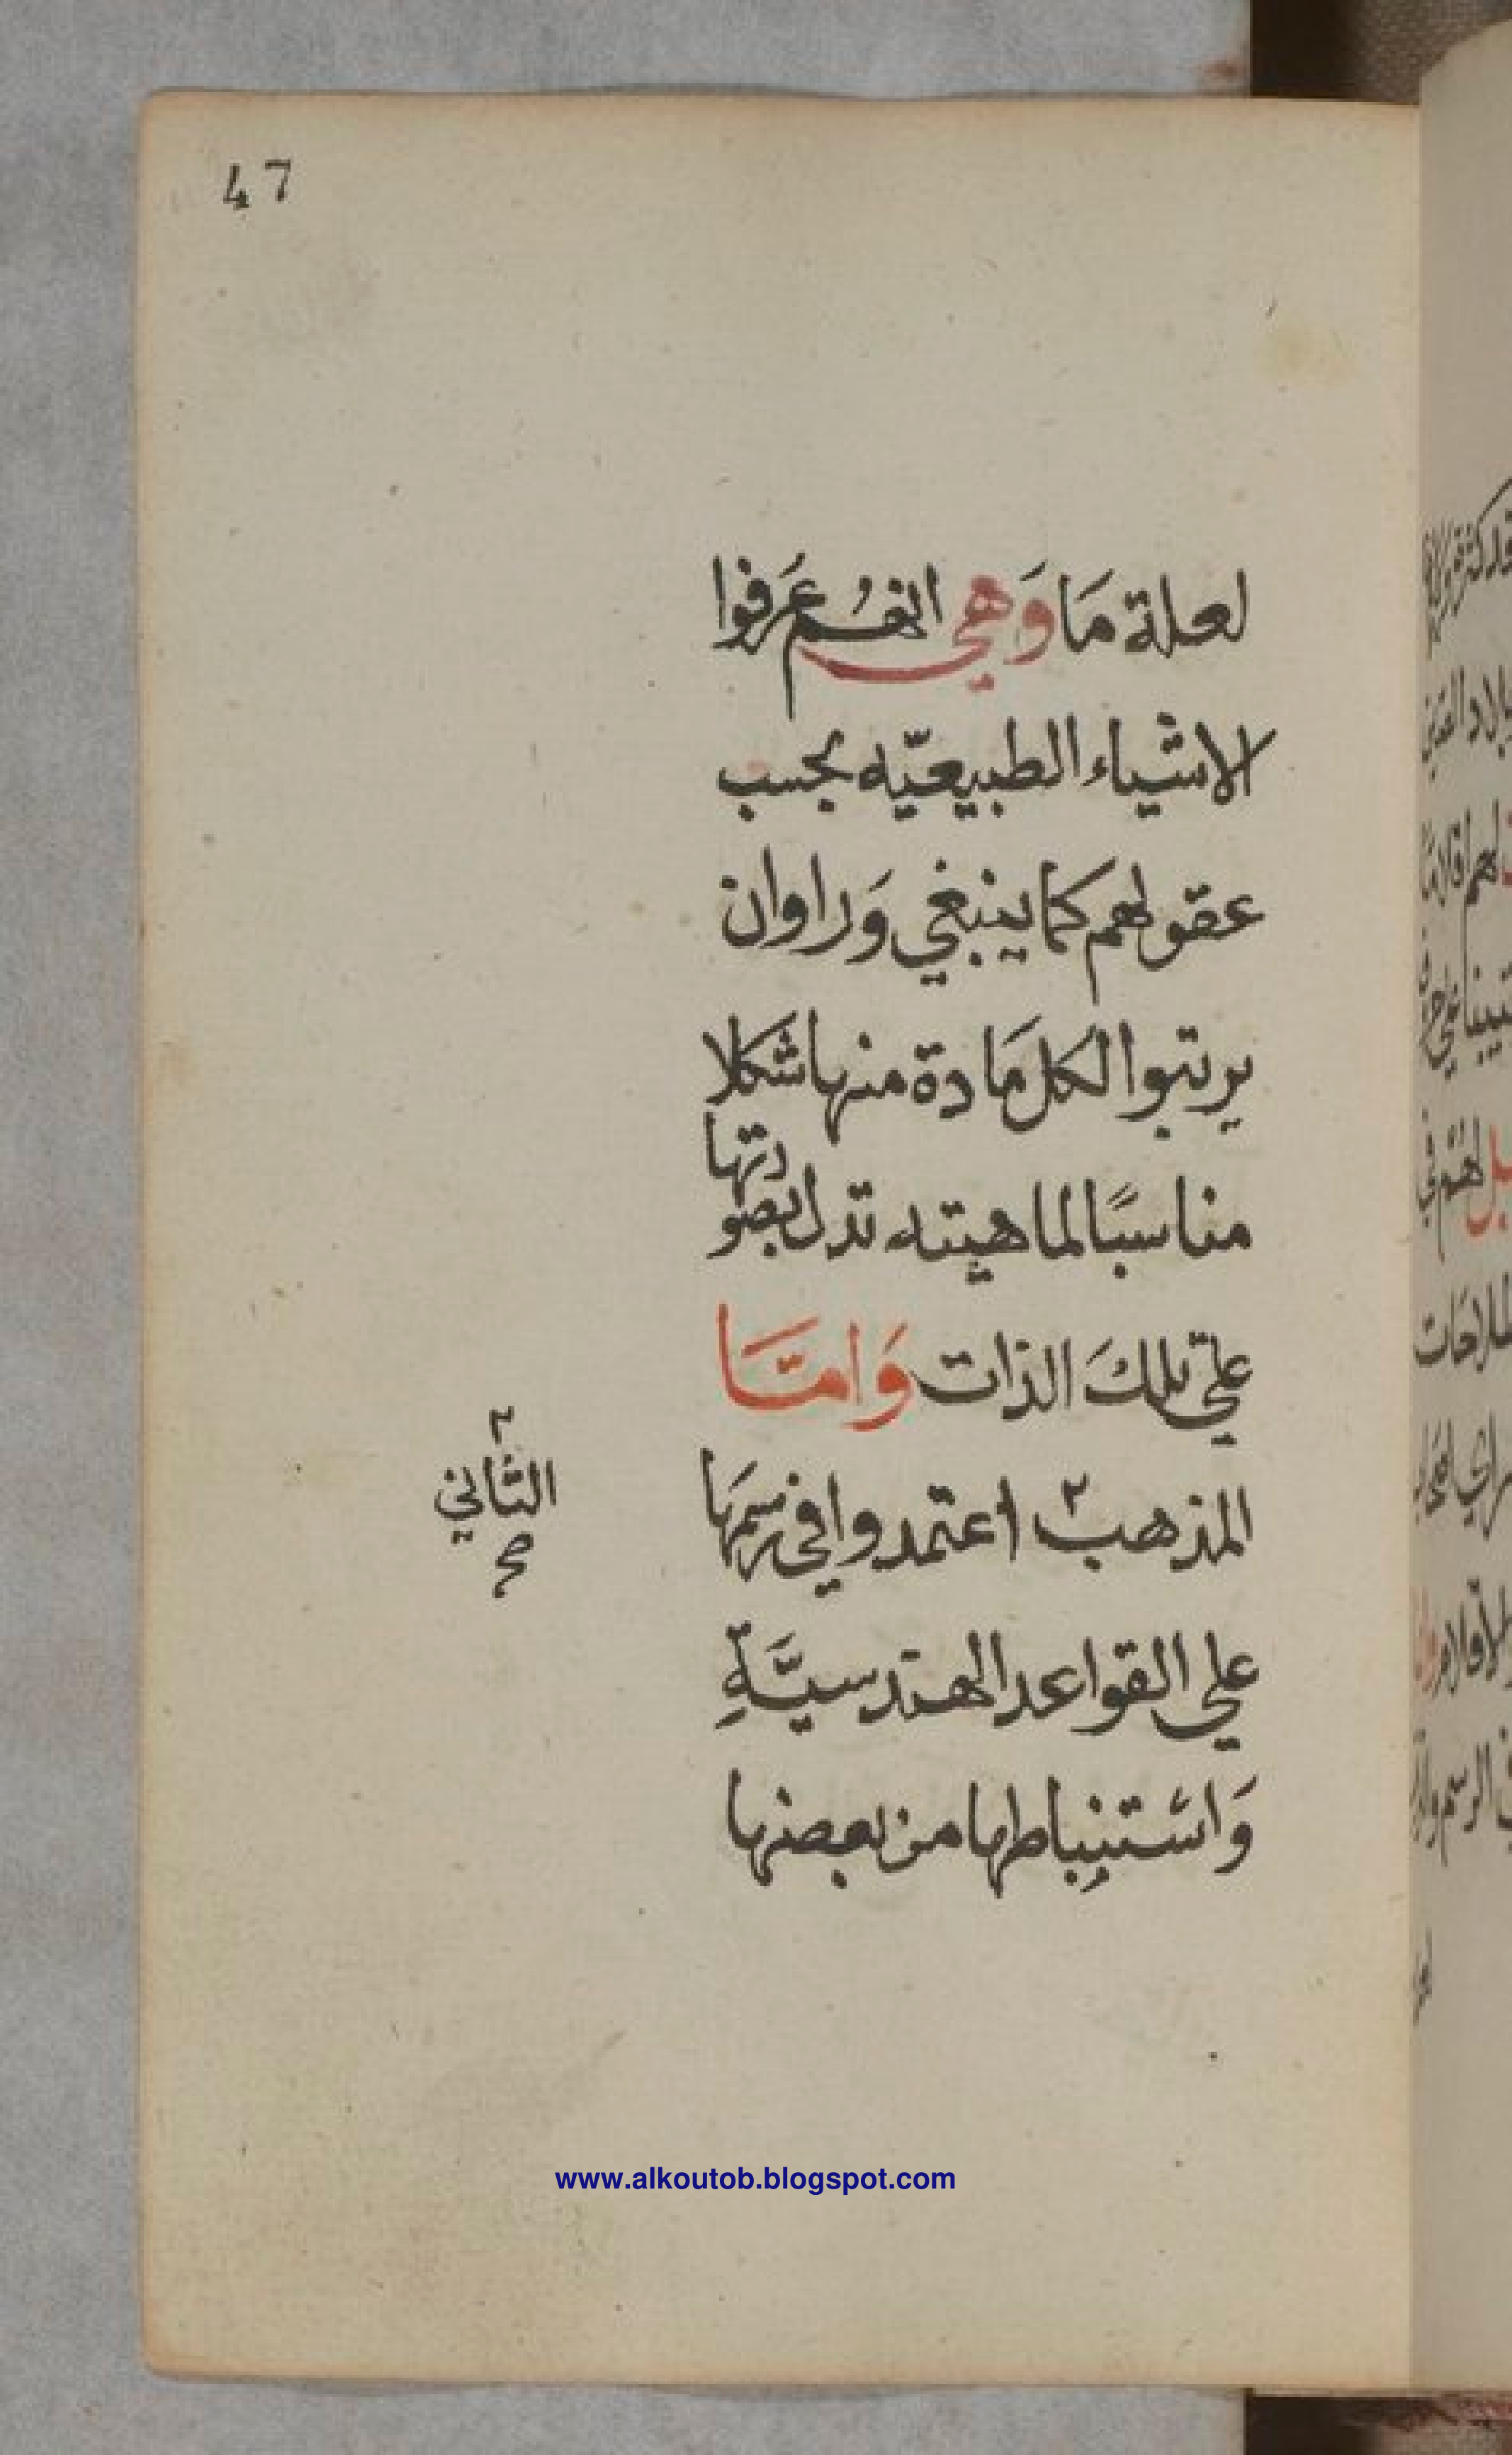 47
لعلة مَا وَهي انهُم عَرفوا
الاشياء الطبيعيّه بحسب
عقولهم كما ينبغي وَراوان
يرتبوا لكل مَادة منها شكلا
مناسبًا لماهيته تدل بصورتها
علي تلكَ الذات وَامَّا
المذهب ٢ اعتمدوا في رسمهَا
علي القواعد الهندسيَّةِ
وَاستنِباطها من بعضها
٢
الثاني
صح
www.alkoutob.blogspot.com